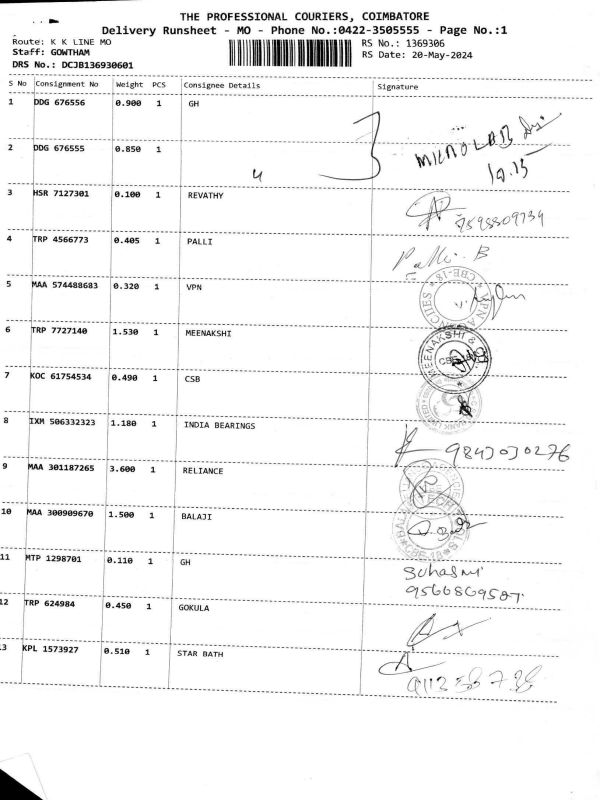 THE PROFESSIONAL COURIERS, COIMBATORE
Delivery Runsheet - MO - Phone No.:0422-3505555 - Page No.:1
Route: K K LINE MO
Staff: GOWTHAM
DRS No.: DCJB136930601
RS No.: 1369306
RS Date: 20-May-2024
S No Consignment No Weight PCS Consignee Details Signature
1 DDG 676556 0.900 1 GH
2 DDG 676555 0.850 1 MICROLAB
10.15
3 HSR 7127301 0.100 1 REVATHY
4 TRP 4566773 0.405 1 PALLI Palli. B
5 MAA 574488683 0.320 1 VPN
CBE-18 VPN
6 TRP 7727140 1.530 1 MEENAKSHI
MEENAKSHI & CO.
CBE
7 KOC 61754534 0.490 1 CSB
8 IXM 506332323 1.180 1 INDIA BEARINGS 9843030276
9 MAA 301187265 3.600 1 RELIANCE
10 MAA 300909670 1.500 1 BALAJI
11 MTP 1298701 0.110 1 GH
12 TRP 624984 0.450 1 GOKULA
13 KPL 1573927 0.510 1 STAR BATH